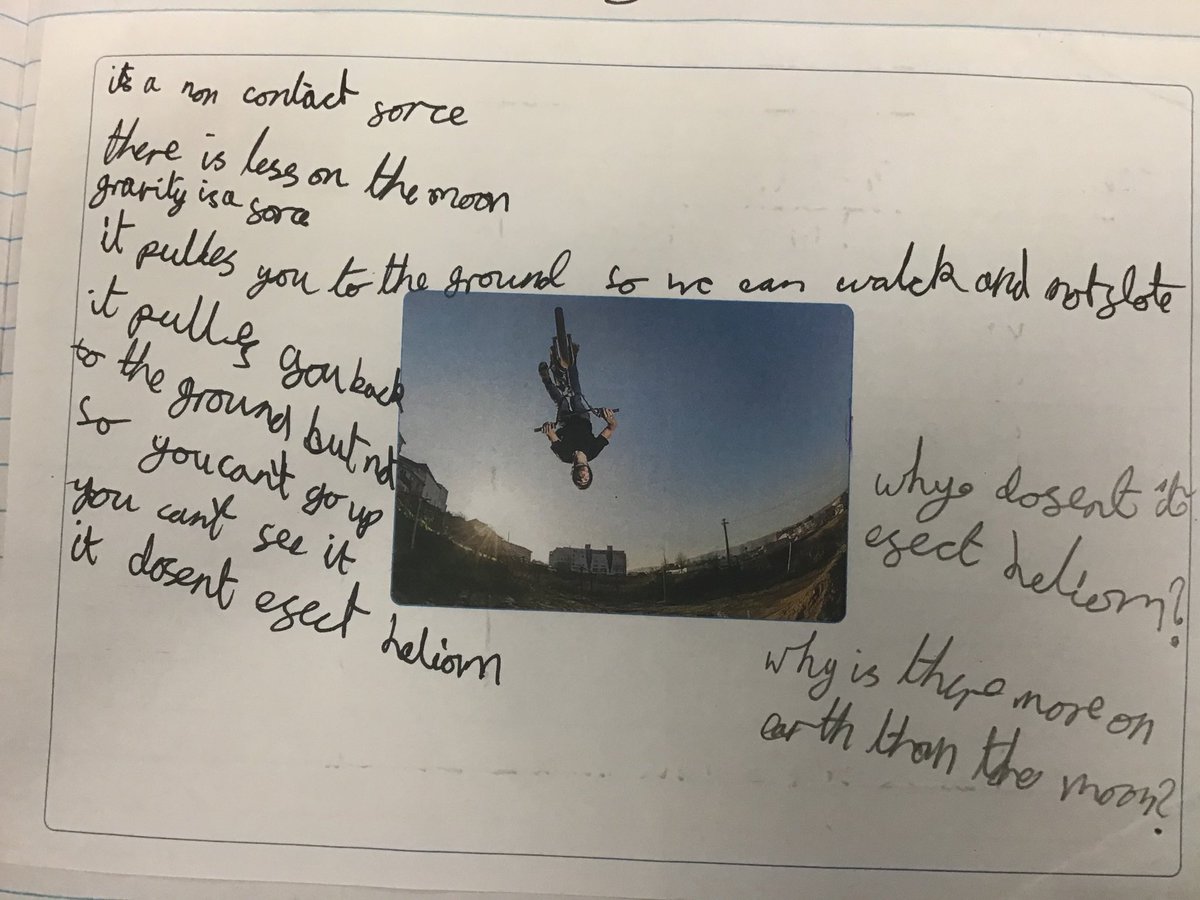 its a non contact sorce
there is less on the moon
gravity is a sorce
it pulles you to the ground so we can walck and not slote
it pulles you back
to the ground but not
so you can't go up
you can't see it
it dosent esect heliorn
why dosent it
esect heliorn?
why is there more on
earth than the moon?